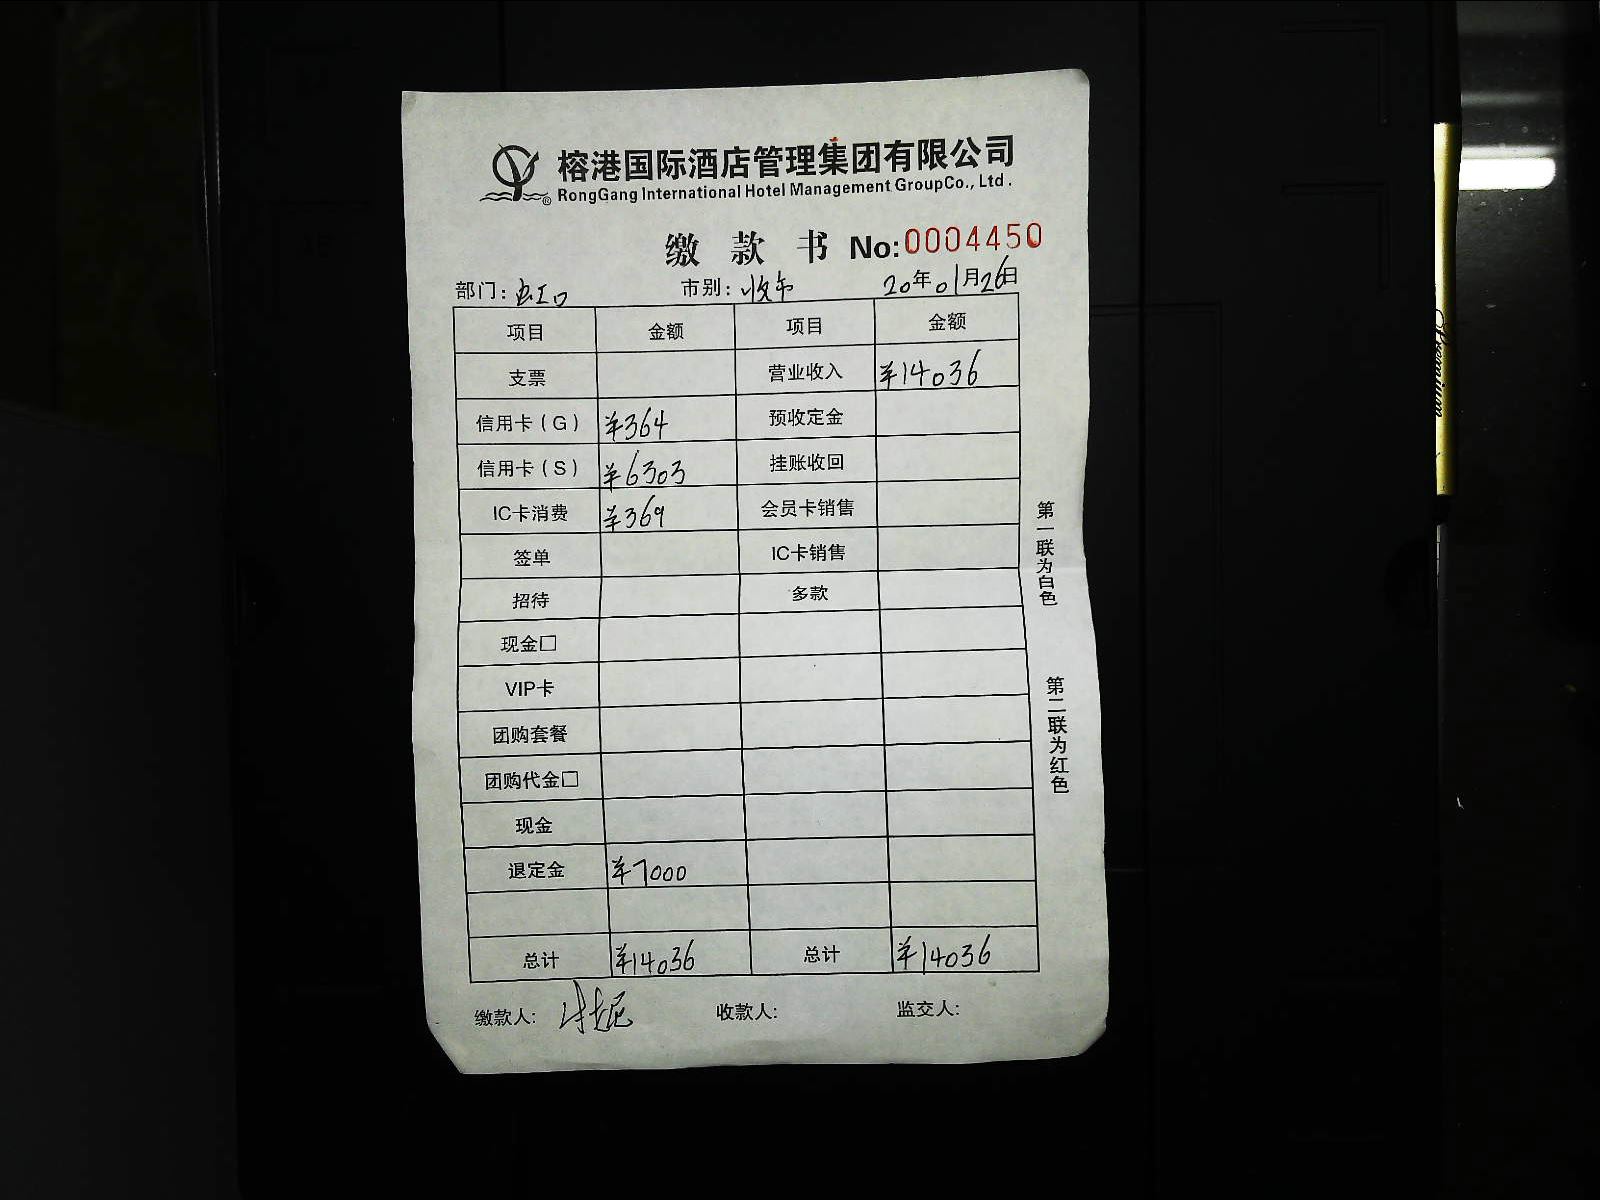 榕港国际酒店管理集团有限公司
RongGang International Hotel Management GroupCo., Ltd.
缴 款 书 No:0004450
部门: 虹口 市别: 收市 20年01月26日
项目 金额 项目 金额
支票 营业收入 ¥14036
信用卡(G) ¥364 预收定金
信用卡(S) ¥6303 挂账收回
IC卡消费 ¥369 会员卡销售
签单 IC卡销售
招待 多款
现金□
VIP卡
团购套餐
团购代金□
现金
退定金 ¥7000
总计 ¥14036 总计 ¥14036
缴款人: 收款人: 监交人:
第一联为白色
第二联为红色
Premium